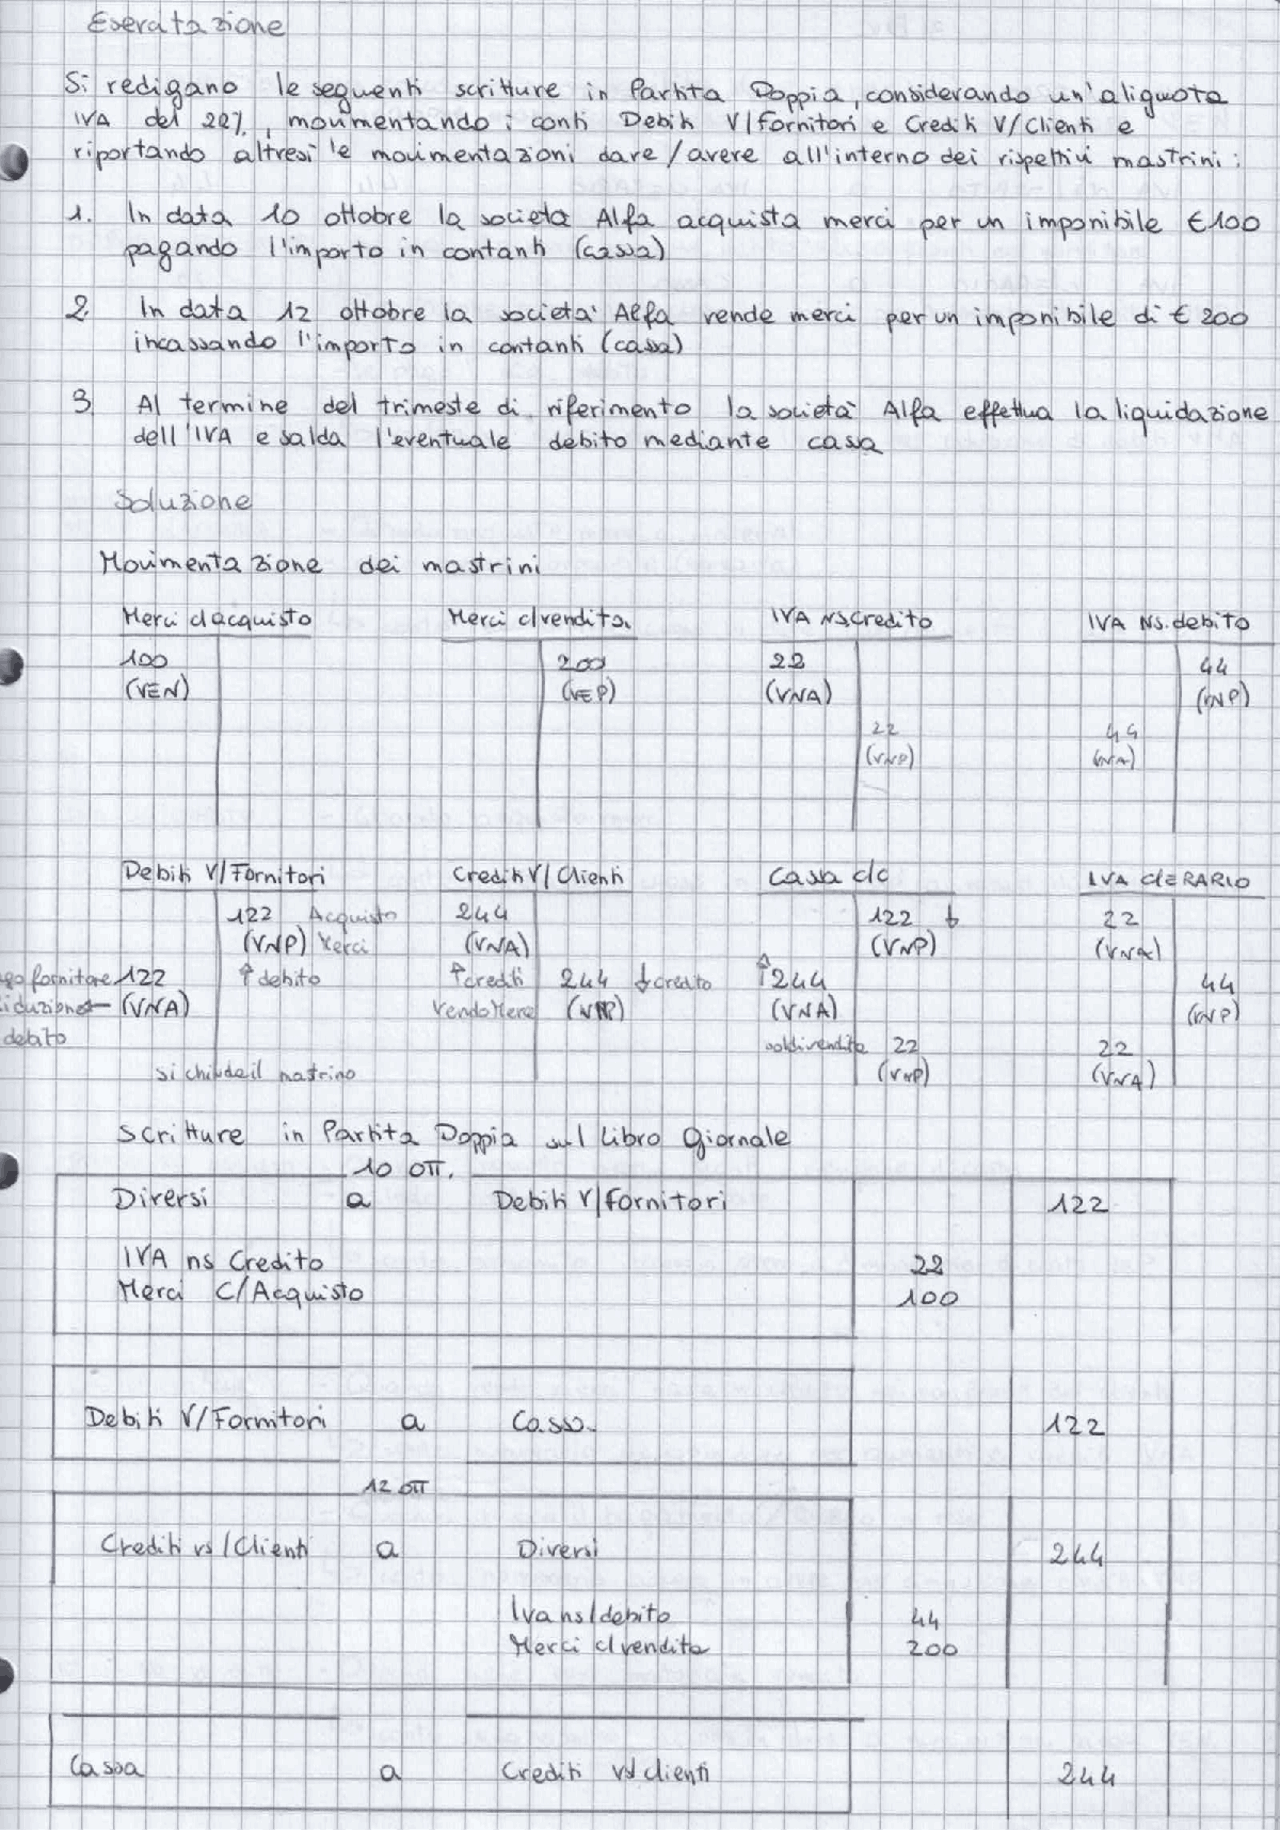 Esercitazione
Si redigano le seguenti scritture in Partita Doppia, considerando un'aliquota
IVA del 22%, movimentando i conti Debiti V/Fornitori e Crediti V/Clienti e
riportando altresì le movimentazioni dare/avere all'interno dei rispettivi mastrini:
1. In data 10 ottobre la società Alfa acquista merci per un imponibile €100
pagando l'importo in contanti (cassa)
2. In data 12 ottobre la società Alfa vende merci per un imponibile di € 200
incassando l'importo in contanti (cassa)
3 Al termine del trimeste di riferimento la società Alfa effettua la liquidazione
dell'IVA e salda l'eventuale debito mediante cassa
Soluzione
Movimentazione dei mastrini
Merci c/acquisto Merci c/vendita IVA ns.credito IVA Ns. debito
100 200 22 44
(VEN) (VEP) (VNA) (VNP)
22 44
(VNP) (VNA)
Debiti V/Fornitori Crediti V/Clienti Cassa c/c IVA c/ERARIO
122 Acquisto 244 122 22
(VNP) Merci (VNA) (VNP) (VNA)
fornitore 122 ↑ debito ↑ crediti 244 ↓ credito ↑ 244 44
(VNA) vendo Merce (VNP) (VNA) (VNP)
debito soldi vendita 22 22
si chiude il mastrino (VNP) (VNA)
Scritture in Partita Doppia sul Libro Giornale
10 OTT.
Diversi a Debiti V/Fornitori 122
IVA ns Credito 22
Merci C/Acquisto 100
Debiti V/Fornitori a Cassa 122
12 OTT
Crediti vs/Clienti a Diversi 244
Iva ns/debito 44
Merci c/vendita 200
Cassa a Crediti vs/clienti 244